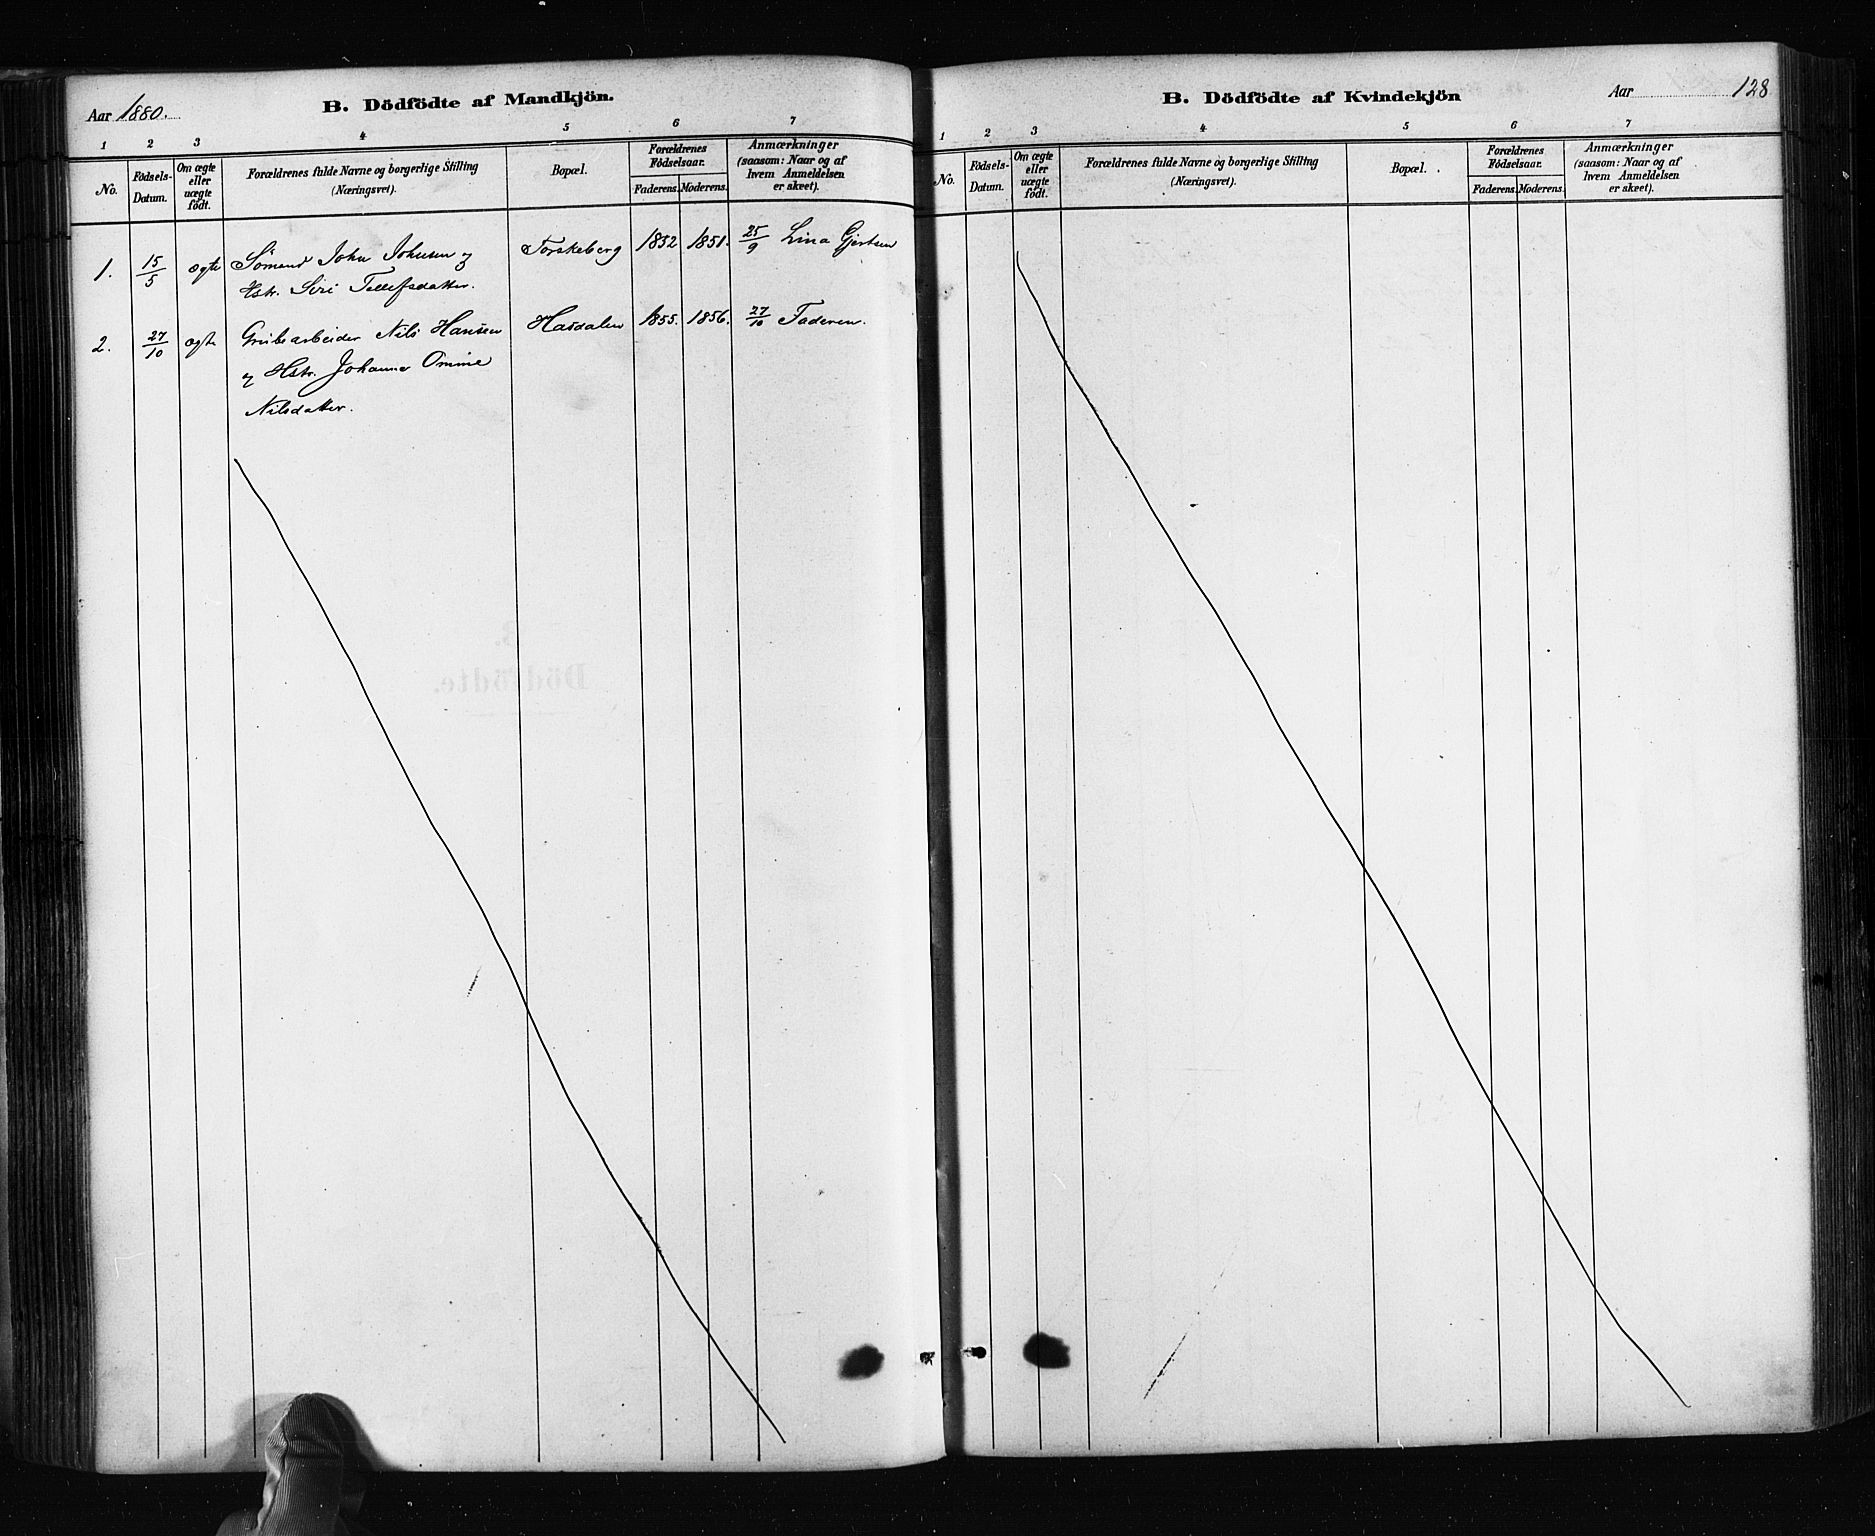 Aar 1880.
B. Dödfödte af Mandkjön.
1 2 3 4 5 6 7
No.
Födsels-
Datum.
Om ægte
eller
uægte
födt.
Forældrenes fulde Navne og borgerlige Stilling
(Næringsvei).
Bopæl.
Forældrenes
Födselsaar.
Faderens. Moderens.
Anmærkninger
(saasom: Naar og af
hvem Anmeldelsen
er skeet).
1. 15/5 ægte Sömand John Johnsen og Torskeberg 1852 1851. 25/9 Lina Gjertsen
Hstr. Siri Tellefsdatter.
2. 27/10 ægte Grubearbeider Nils Hansen Hasdalen 1855. 1856. 27/10 Faderen.
og Hstr. Johanne Omine
Nilsdatter.
B. Dödfödte af Kvindekjön
Aar
128
1 2 3 4 5 6 7
No.
Födsels-
Datum.
Om ægte
eller
uægte
födt.
Forældrenes fulde Navne og borgerlige Stilling
(Næringsvei).
Bopæl.
Forældrenes
Födselsaar.
Faderens. Moderens.
Anmærkninger
(saasom: Naar og af
hvem Anmeldelsen
er skeet).